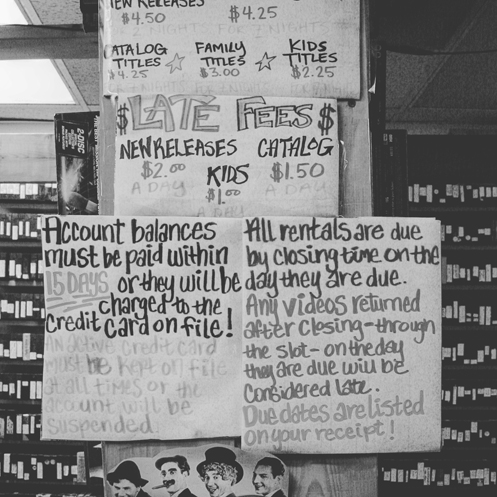 NEW RELEASES
$4.50 $4.25
2 NIGHTS FOR 7 NIGHTS
CATALOG FAMILY KIDS
TITLES TITLES TITLES
$4.25 $3.00 $2.25
$ LATE FEES $
NEW RELEASES CATALOG
$2.00 KIDS $1.50
A DAY $1.00 A DAY
A DAY
Account balances
must be paid within
15 DAYS or they will be
charged to the
Credit Card on file!
An active credit card
must be kept on file
at all times or the
account will be
suspended.
All rentals are due
by closing time on the
day they are due.
Any videos returned
after closing-through
the slot- on the day
they are due will be
considered late.
Due dates are listed
on your receipt!
2-DISC